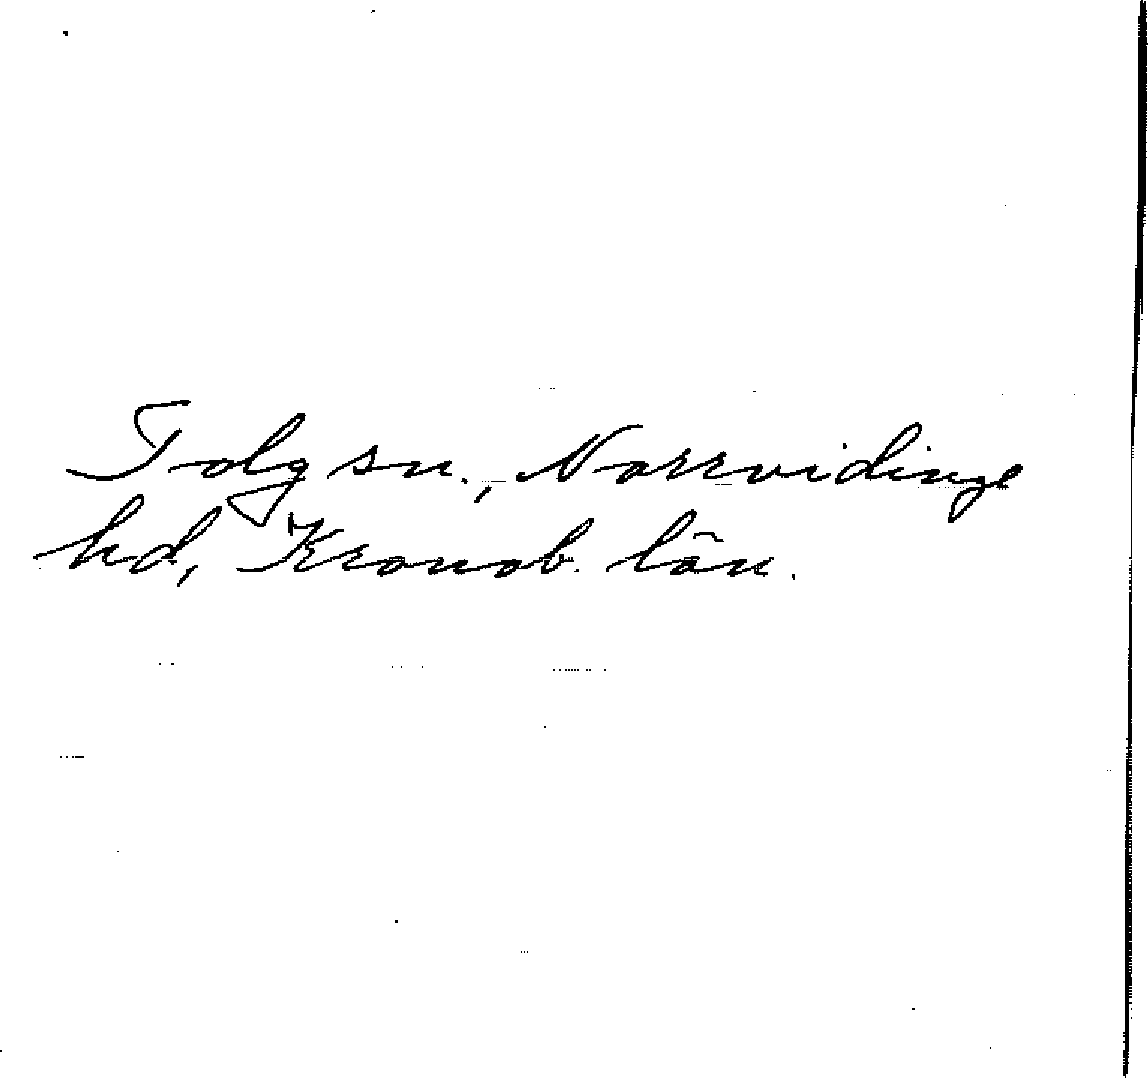 Tolg sn., Norrvidinge
hd, Kronob. län.